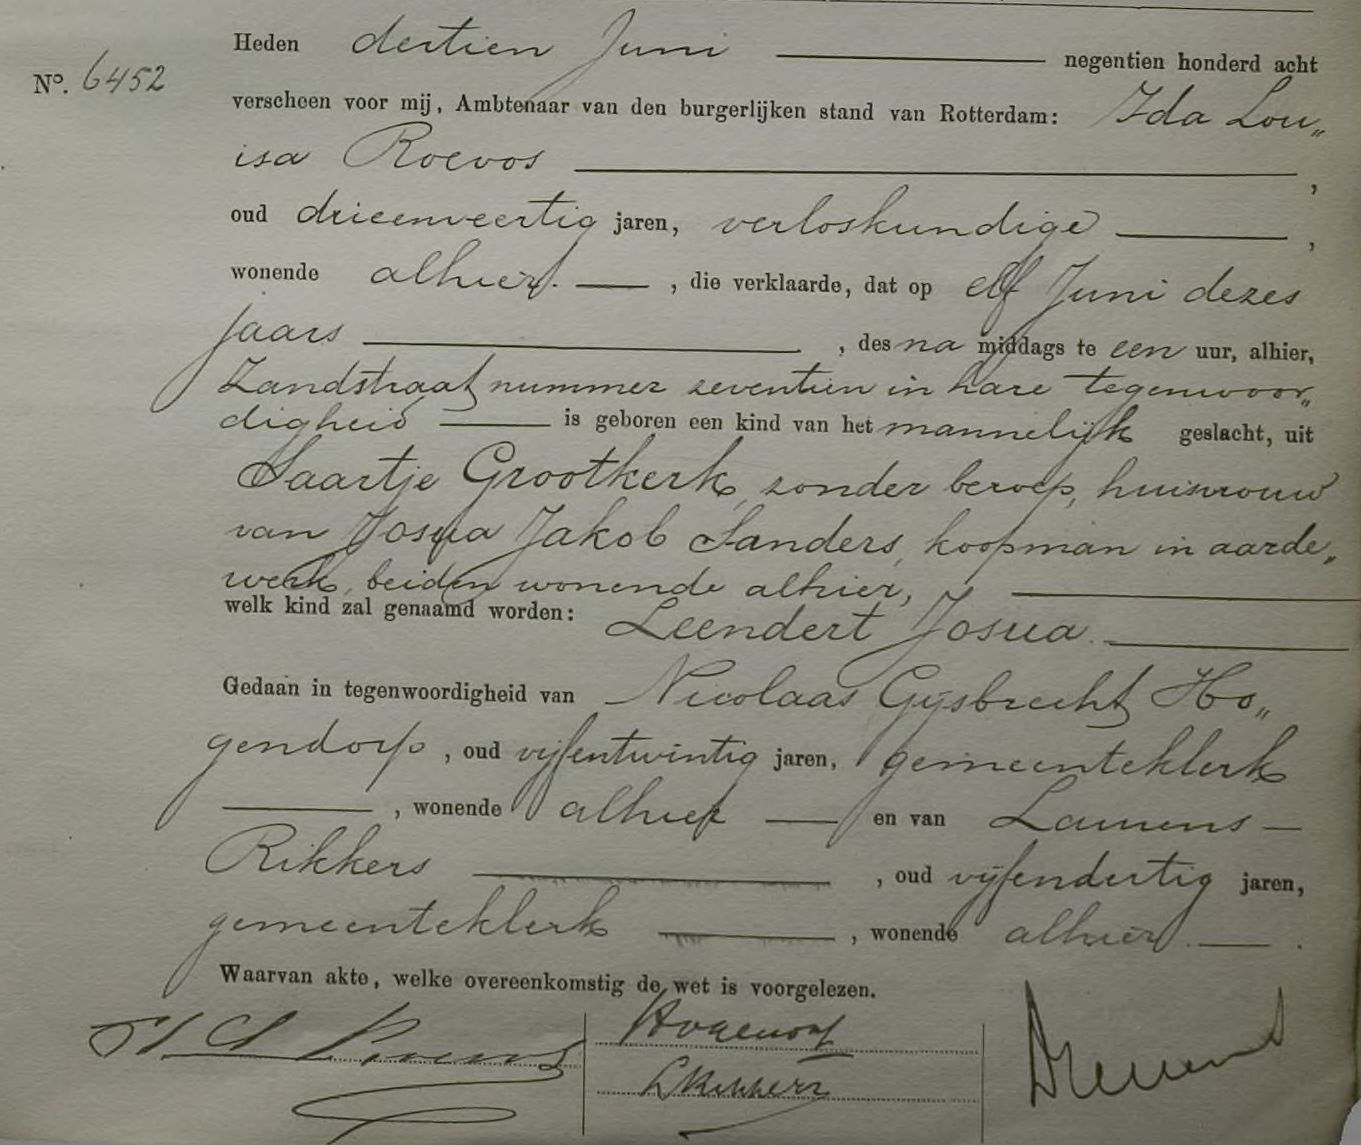 Heden dertien Juni negentien honderd acht
No. 6452
verscheen voor mij, Ambtenaar van den burgerlijken stand van Rotterdam: Ida Lou„
isa Roevos ,
oud drieenveertig jaren, verloskundige ,
wonende alhier. , die verklaarde, dat op elf Juni dezes
jaars , des na middags te een uur, alhier,
Zandstraat nummer zeventien in hare tegenwoor„
digheid is geboren een kind van het mannelijk geslacht, uit
Saartje Grootkerk, zonder beroep, huisvrouw
van Josua Jakob Sanders, koopman in aarde„
werk, beiden wonende alhier,
welk kind zal genaamd worden: Leendert Josua.
Gedaan in tegenwoordigheid van Nicolaas Gijsbrecht Ho„
gendorp, oud vijfentwintig jaren, gemeenteklerk
, wonende alhier en van Laurens
Rikkers , oud vijfendertig jaren,
gemeenteklerk , wonende alhier.
Waarvan akte, welke overeenkomstig de wet is voorgelezen.
Hogendorp
L Rikkers